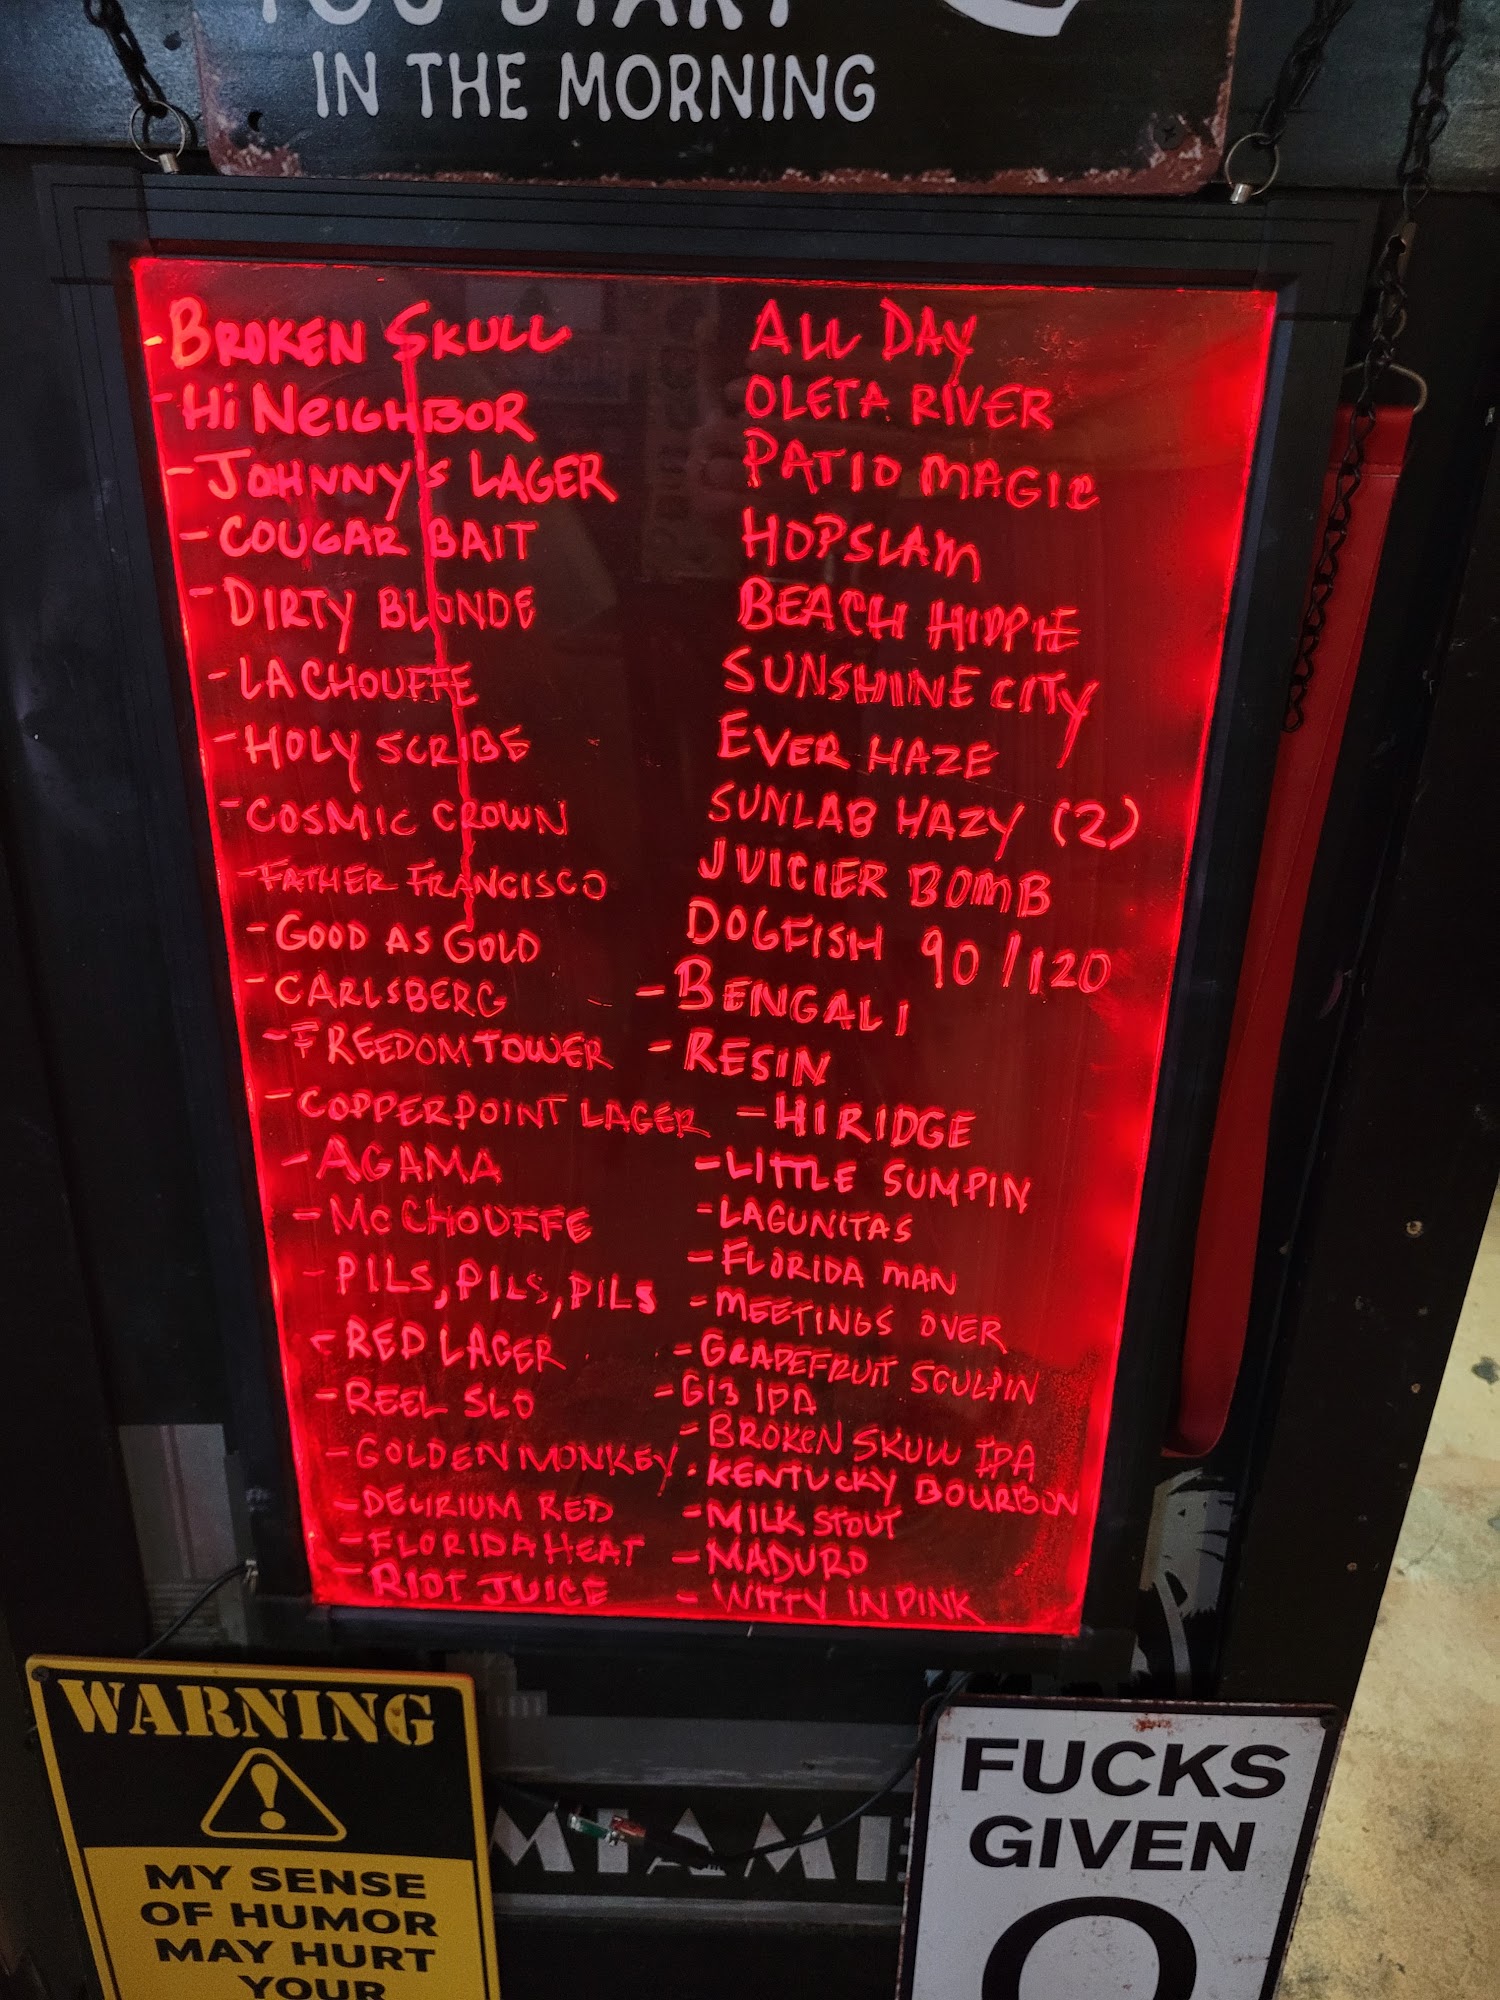 YOU START
IN THE MORNING
- BROKEN SKULL
- Hi NeIGHBOR
- JOHNNY'S LAGER
- COUGAR BAIT
- DIRTY BLONDE
- LA CHOUFFE
- HOLY SCRIBS
- COSMIC CROWN
- FATHER FRANCISCO
- GOOD AS GOLD
- CARLSBERG
- FREEDOM TOWER
- COPPERPOINT LAGER
- AGAMA
- Mc CHOUFFE
- PILS, PILS, PILS
- RED LAGER
- REEL SLO
- GOLDEN MONKEY
- DELIRIUM RED
- FLORIDA HEAT
- RIOT JUICE
ALL DAY
OLETA RIVER
PATIO MAGIC
HOPSLAM
BEACH HIPPIE
SUNSHINE CITY
EVER HAZE
SUNLAB HAZY (2)
JUICIER BOMB
DOGFISH 90/120
- BENGALI
- RESIN
- HI RIDGE
- LITTLE SUMPIN
- LAGUNITAS
- FLORIDA MAN
- MEETINGS OVER
- GRAPEFRUIT SCULPIN
- G13 IPA
- BROKEN SKULL IPA
· KENTUCKY BOURBON
- MILK STOUT
- MADURO
- WITTY IN PINK
WARNING
!
MY SENSE
OF HUMOR
MAY HURT
YOUR
MIAMI
FUCKS
GIVEN
0